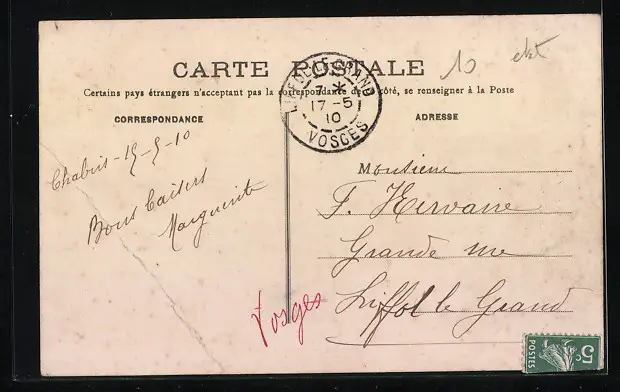 CARTE POSTALE
Certains pays étrangers n'acceptant pas la correspondance de ce côté, se renseigner à la Poste
CORRESPONDANCE
ADRESSE
LIFFOL-LE-GRAND
7 *
17-5
10
VOSGES
10
Chabris-15-5-10
Bons baisers
Marguerite
Monsieur
F. Hervaire
Grande rue
Liffol le Grand
Vosges
5c
POSTES